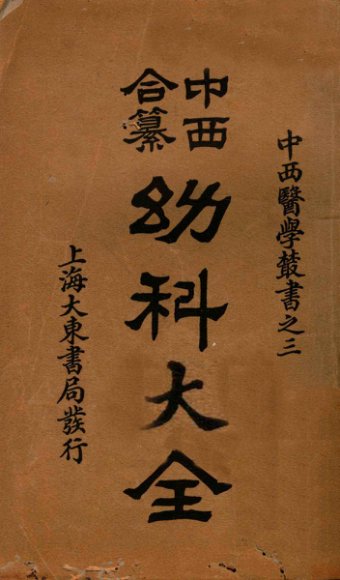 中西醫學叢書之三
中西
合纂
幼科大全
上海大東書局發行